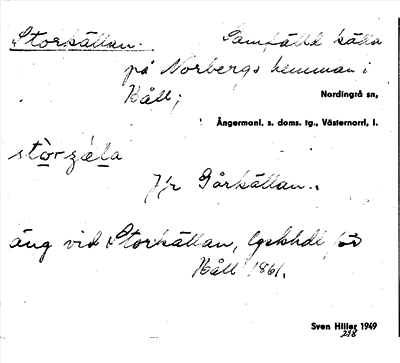 Storkällan. Samfälld källa
på Norbergs hemman i
Håll; Nordingrå sn,
Ångermanl. s. doms. tg., Västernorrl. l.
stòrzæ̀la
Jfr Gårkällan.
äng vid Storkällan, lgskhdl för
Håll 1861.
Sven Hiller 1949
218